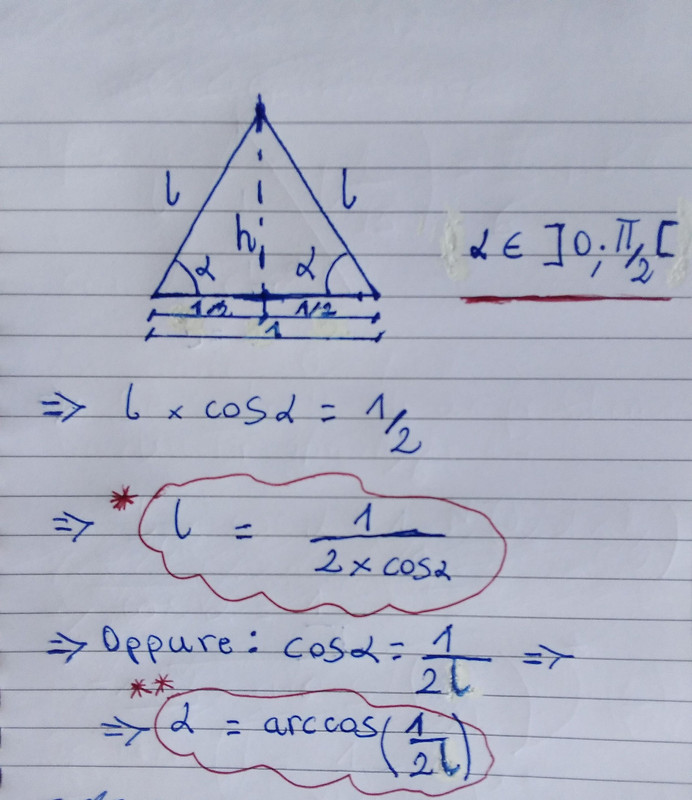 l l
h
α α
α ∈ ]0; π/2[
1/2 1/2
1
=> l × cosα = 1/2
* => l = 1 / 2 × cosα
=> Oppure: cosα = 1 / 2l =>
** => α = arccos(1 / 2l)